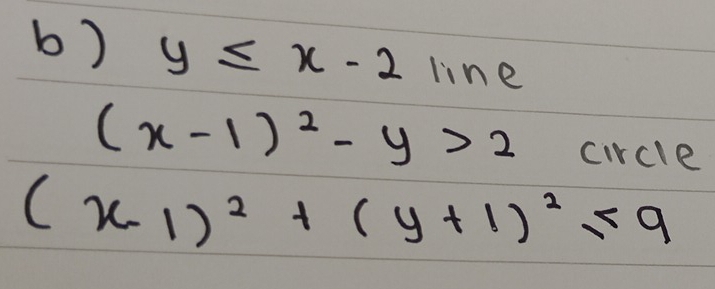 b) y ≤ x - 2 line
(x - 1)² - y > 2 circle
(x - 1)² + (y + 1)² ≤ 9